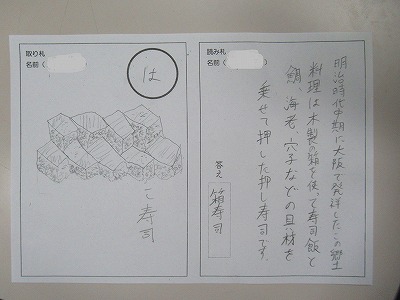 取り札
名前（
は
こ寿司
読み札
名前（
明治時代中期に大阪で発祥したこの郷土
料理は木製の箱を使って寿司飯と
鯛、海老、穴子などの具材を
乗せて押した押し寿司です。
答え
箱寿司